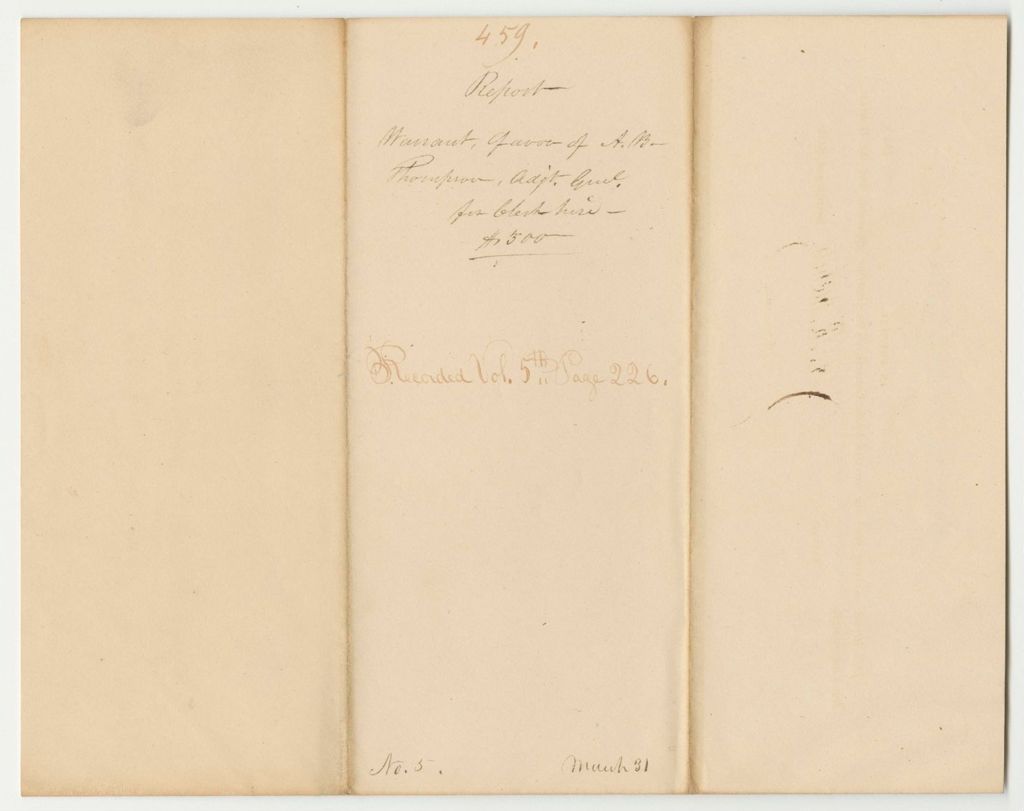 459.
Report
Warrant, favor of A. B.
Thompson, Adjt. Genl.
for Clerk hire –
$500
Recorded Vol. 5th Page 226.
No. 5.
March 31